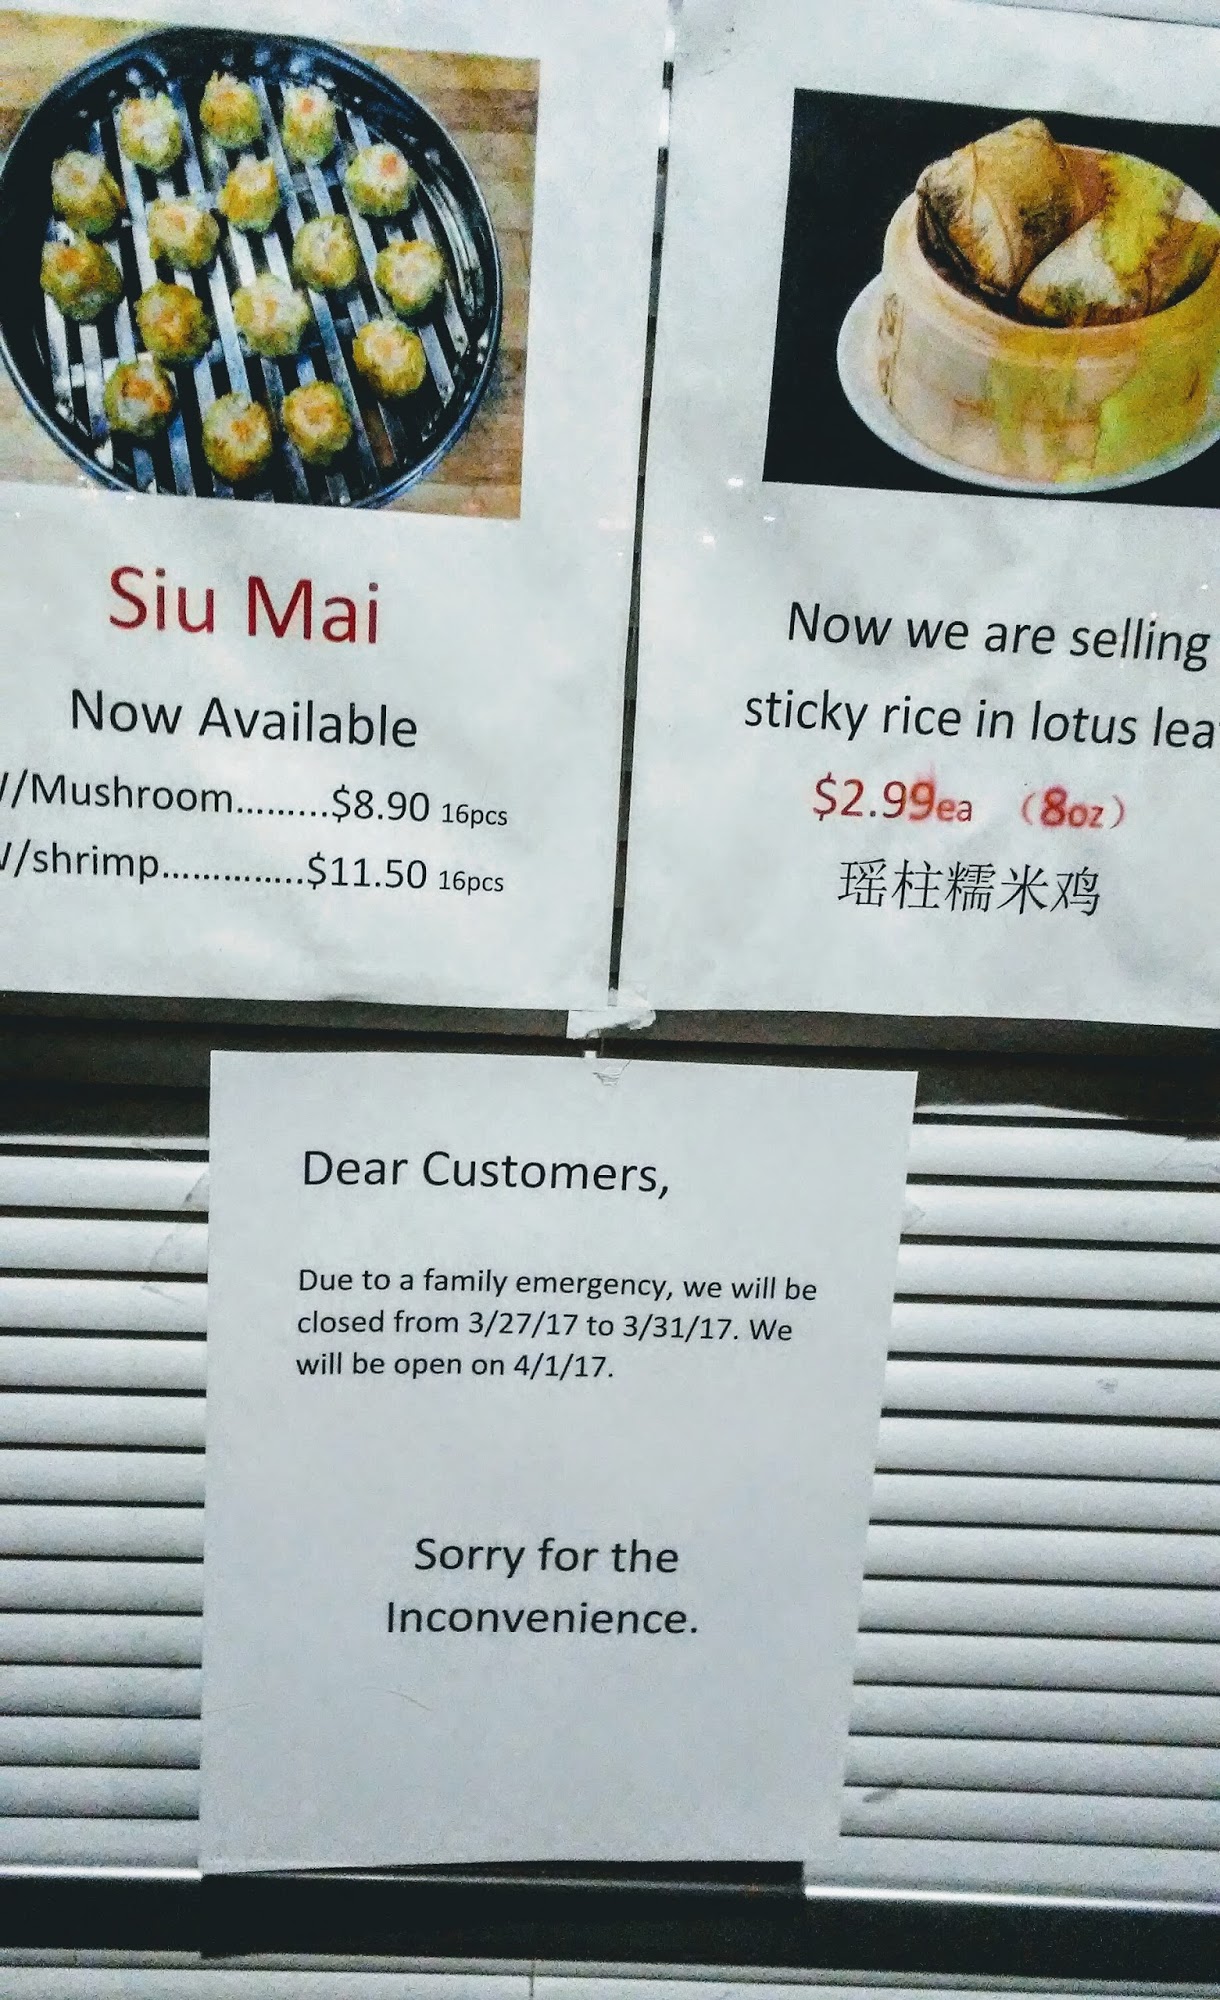 Siu Mai
Now Available
/Mushroom.........$8.90 16pcs
/shrimp..............$11.50 16pcs
Now we are selling
sticky rice in lotus lea
$2.99ea （8oz）
瑶柱糯米鸡
Dear Customers,
Due to a family emergency, we will be
closed from 3/27/17 to 3/31/17. We
will be open on 4/1/17.
Sorry for the
Inconvenience.